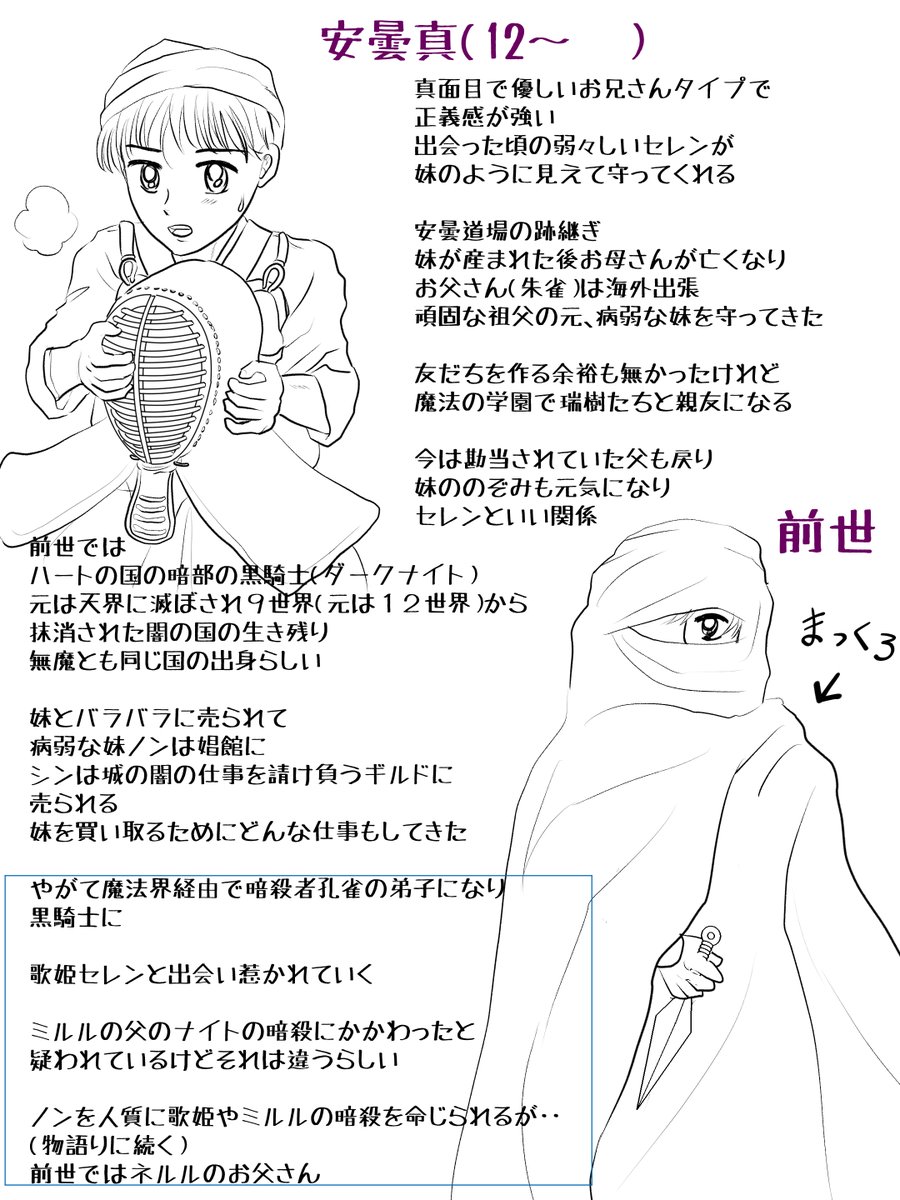 安曇真(12～　　)
真面目で優しいお兄さんタイプで
正義感が強い
出会った頃の弱々しいセレンが
妹のように見えて守ってくれる
安曇道場の跡継ぎ
妹が産まれた後お母さんが亡くなり
お父さん(朱雀)は海外出張
頑固な祖父の元、病弱な妹を守ってきた
友だちを作る余裕も無かったけれど
魔法の学園で瑞樹たちと親友になる
今は勘当されていた父も戻り
妹ののぞみも元気になり
セレンといい関係
前世
まっくろ
前世では
ハートの国の暗部の黒騎士(ダークナイト)
元は天界に滅ぼされ９世界(元は１２世界)から
抹消された闇の国の生き残り
無魔とも同じ国の出身らしい
妹とバラバラに売られて
病弱な妹ノンは娼館に
シンは城の闇の仕事を請け負うギルドに
売られる
妹を買い取るためにどんな仕事もしてきた
やがて魔法界経由で暗殺者孔雀の弟子になり
黒騎士に
歌姫セレンと出会い惹かれていく
ミルルの父のナイトの暗殺にかかわったと
疑われているけどそれは違うらしい
ノンを人質に歌姫やミルルの暗殺を命じられるが‥
(物語りに続く)
前世ではネルルのお父さん